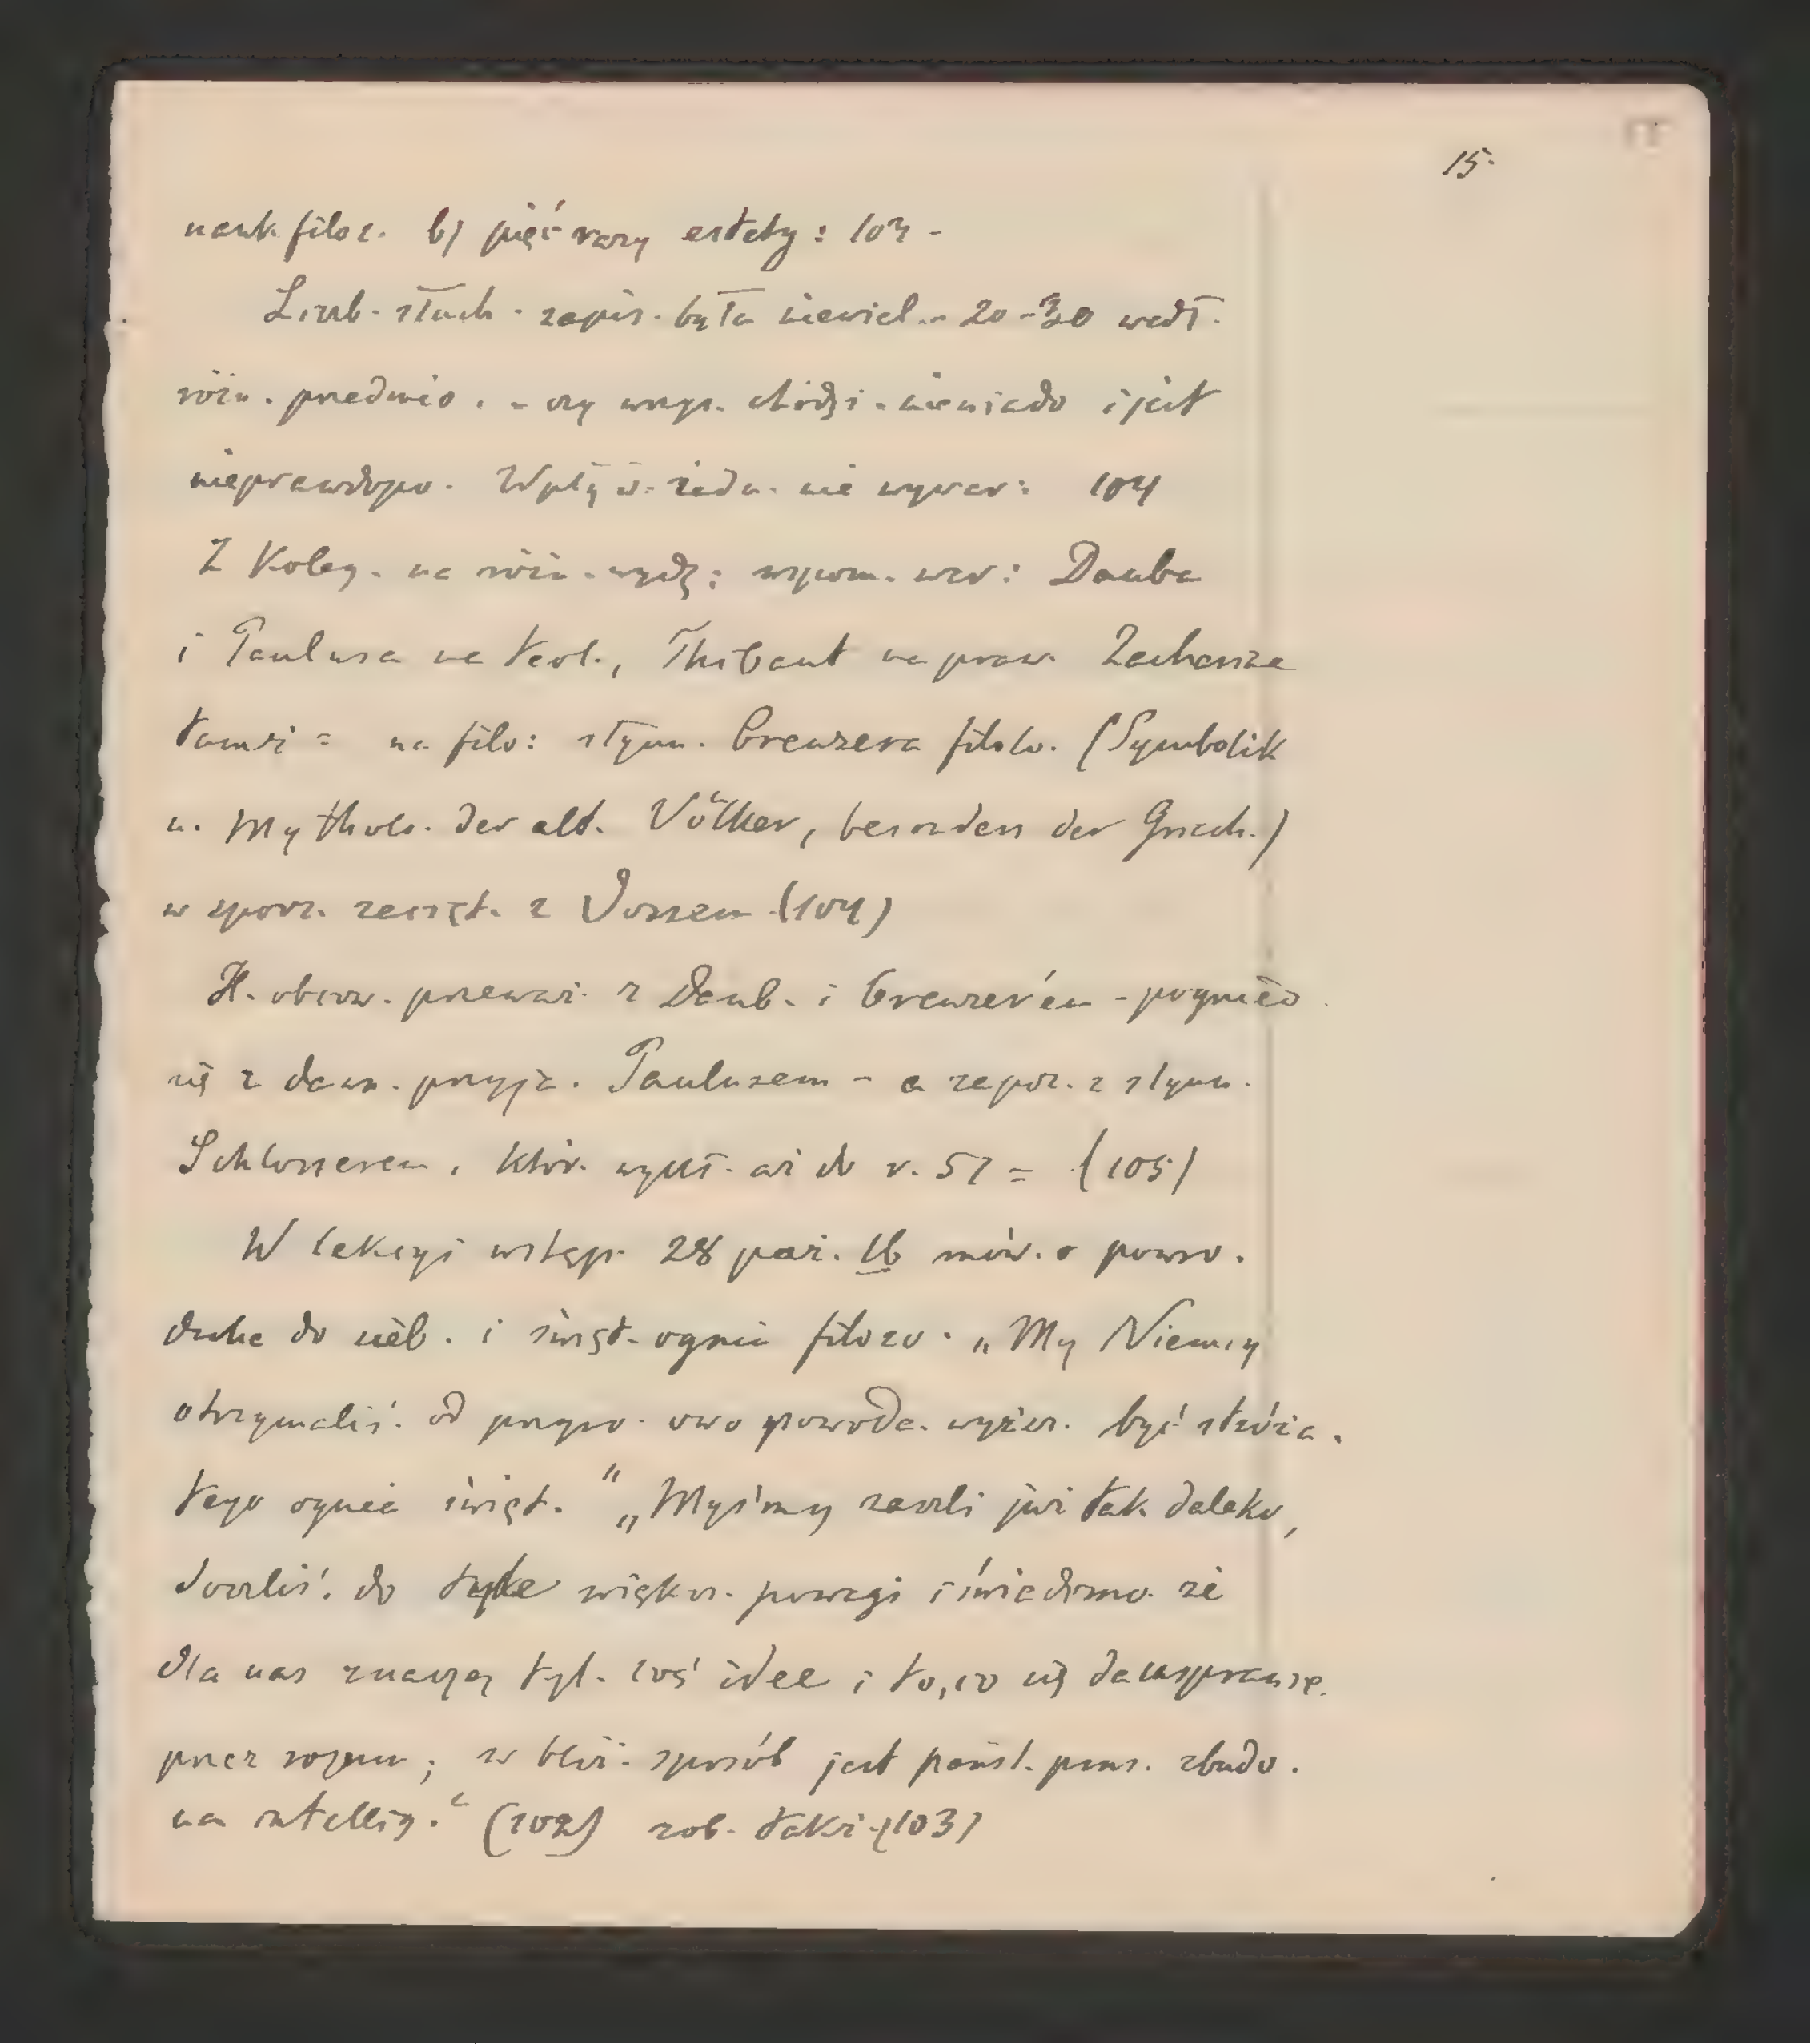 15.
nauk filoz. b) pięć razy estety: 103 -
Liczb. słuch. zapis. była niewiel. - 20-30 wedł.
różn. przedmio. - czy wszys. chodzi. niewiado i jest
nieprawdopo. Wpływ: żadn. nie wywar: 104
Z Koleg. na różn. wydz: wspom. war: Dauba
i Paulusa na teol., Thibaut na praw. Zacharize
tamże = na filo: słynn. Creuzera filolo. (Symbolik
u. Mytholo. der alt. Völker, besonders der Griech.)
w sporz. zacięt. z Vossem (104)
H. obcow. przeważ. z Daub. i Creuzer'em - pogniew
się z dawn. przyja. Paulusem - a zapoz. z słynn.
Schlosserem, któr. wykł. aż do r. 57 = (105)
W lekcyi wstęp. 28 paź. 16 mów. o powro.
ducha do sieb. i święt. ogniu filozo. „My Niemcy
otrzymaliś. od przyro. owo powoła. wyższ. być stróża.
tego ognia święt." „Myśmy zaszli już tak daleko,
doszliś. do tyle większ. powagi i świadomo. że
dla nas znaczą tyl. coś idee i to, co się da usprawie.
przez rozum; w bliż. sposób jest państ. prus. zbudo.
na intellig." (102) zob. także (103)